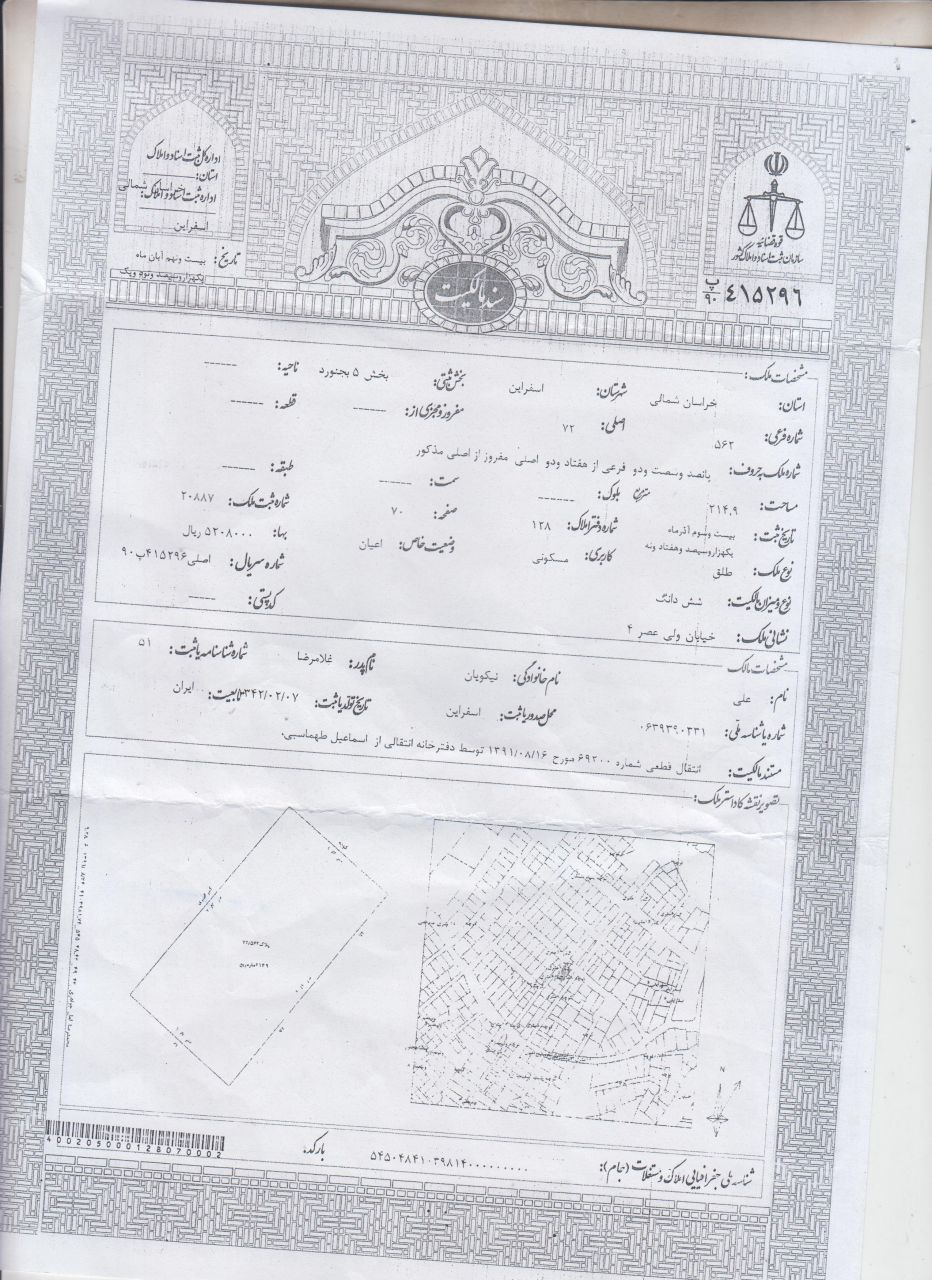 قوه قضائیه
سازمان ثبت اسناد و املاک کشور
۴۱۵۲۹۶ پ ۹۰
سند مالکیت
اداره کل ثبت اسناد و املاک
استان:
اداره ثبت اسناد و املاک: شمالی
اسفراین
تاریخ: بیست ونهم آبان ماه
یکهزاروسیصد ونود ویک
مشخصات ملک:
استان: خراسان شمالی شهرستان: اسفراین بخش ثبتی: بخش ۵ بجنورد ناحیه: ------
شماره فرعی: ۵۶۲ اصلی: ۷۲ مفروز و مجزی از: ------ قطعه: ------
شماره ملک به حروف: پانصد وشصت ودو فرعی از هفتاد ودو اصلی مفروز از اصلی مذکور
مساحت: ۲۱۴.۹ مترمربع بلوک: ------ سمت: ------ طبقه: ------
تاریخ ثبت: بیست وسوم آذرماه یکهزاروسیصد وهفتاد ونه شماره دفتر املاک: ۱۲۸ صفحه: ۷۰ شماره ثبت ملک: ۲۰۸۸۷
نوع ملک: طلق کاربری: مسکونی وضعیت خاص: اعیان بهاء: ۵۲۰۸۰۰۰ ریال
نوع و میزان مالکیت: شش دانگ شماره سریال: اصلی ۴۱۵۲۹۶پ۹۰
نشانی ملک: خیابان ولی عصر ۴ کد پستی: -----
مشخصات مالک
نام: علی نام خانوادگی: نیکویان نام پدر: غلامرضا شماره شناسنامه یا ثبت: ۵۱
شماره یا شناسه ملی: ۰۶۳۹۳۹۰۳۳۱ محل صدور یا ثبت: اسفراین تاریخ تولد یا ثبت: ۳۴۲/۰۲/۰۷ تابعیت: ایران
مستند مالکیت: انتقال قطعی شماره ۶۹۲۰۰ مورخ ۱۳۹۱/۰۸/۱۶ توسط دفترخانه انتقالی از اسماعیل طهماسبی.
تصویر نقشه کاداستر ملک:
N
شناسه ملی جغرافیایی املاک و مستغلات (جام): ۵۴۵۰۴۸۴۱۰۳۹۸۱۴۰۰۰۰۰۰۰۰۰۰
بارکد:
400205000128070002